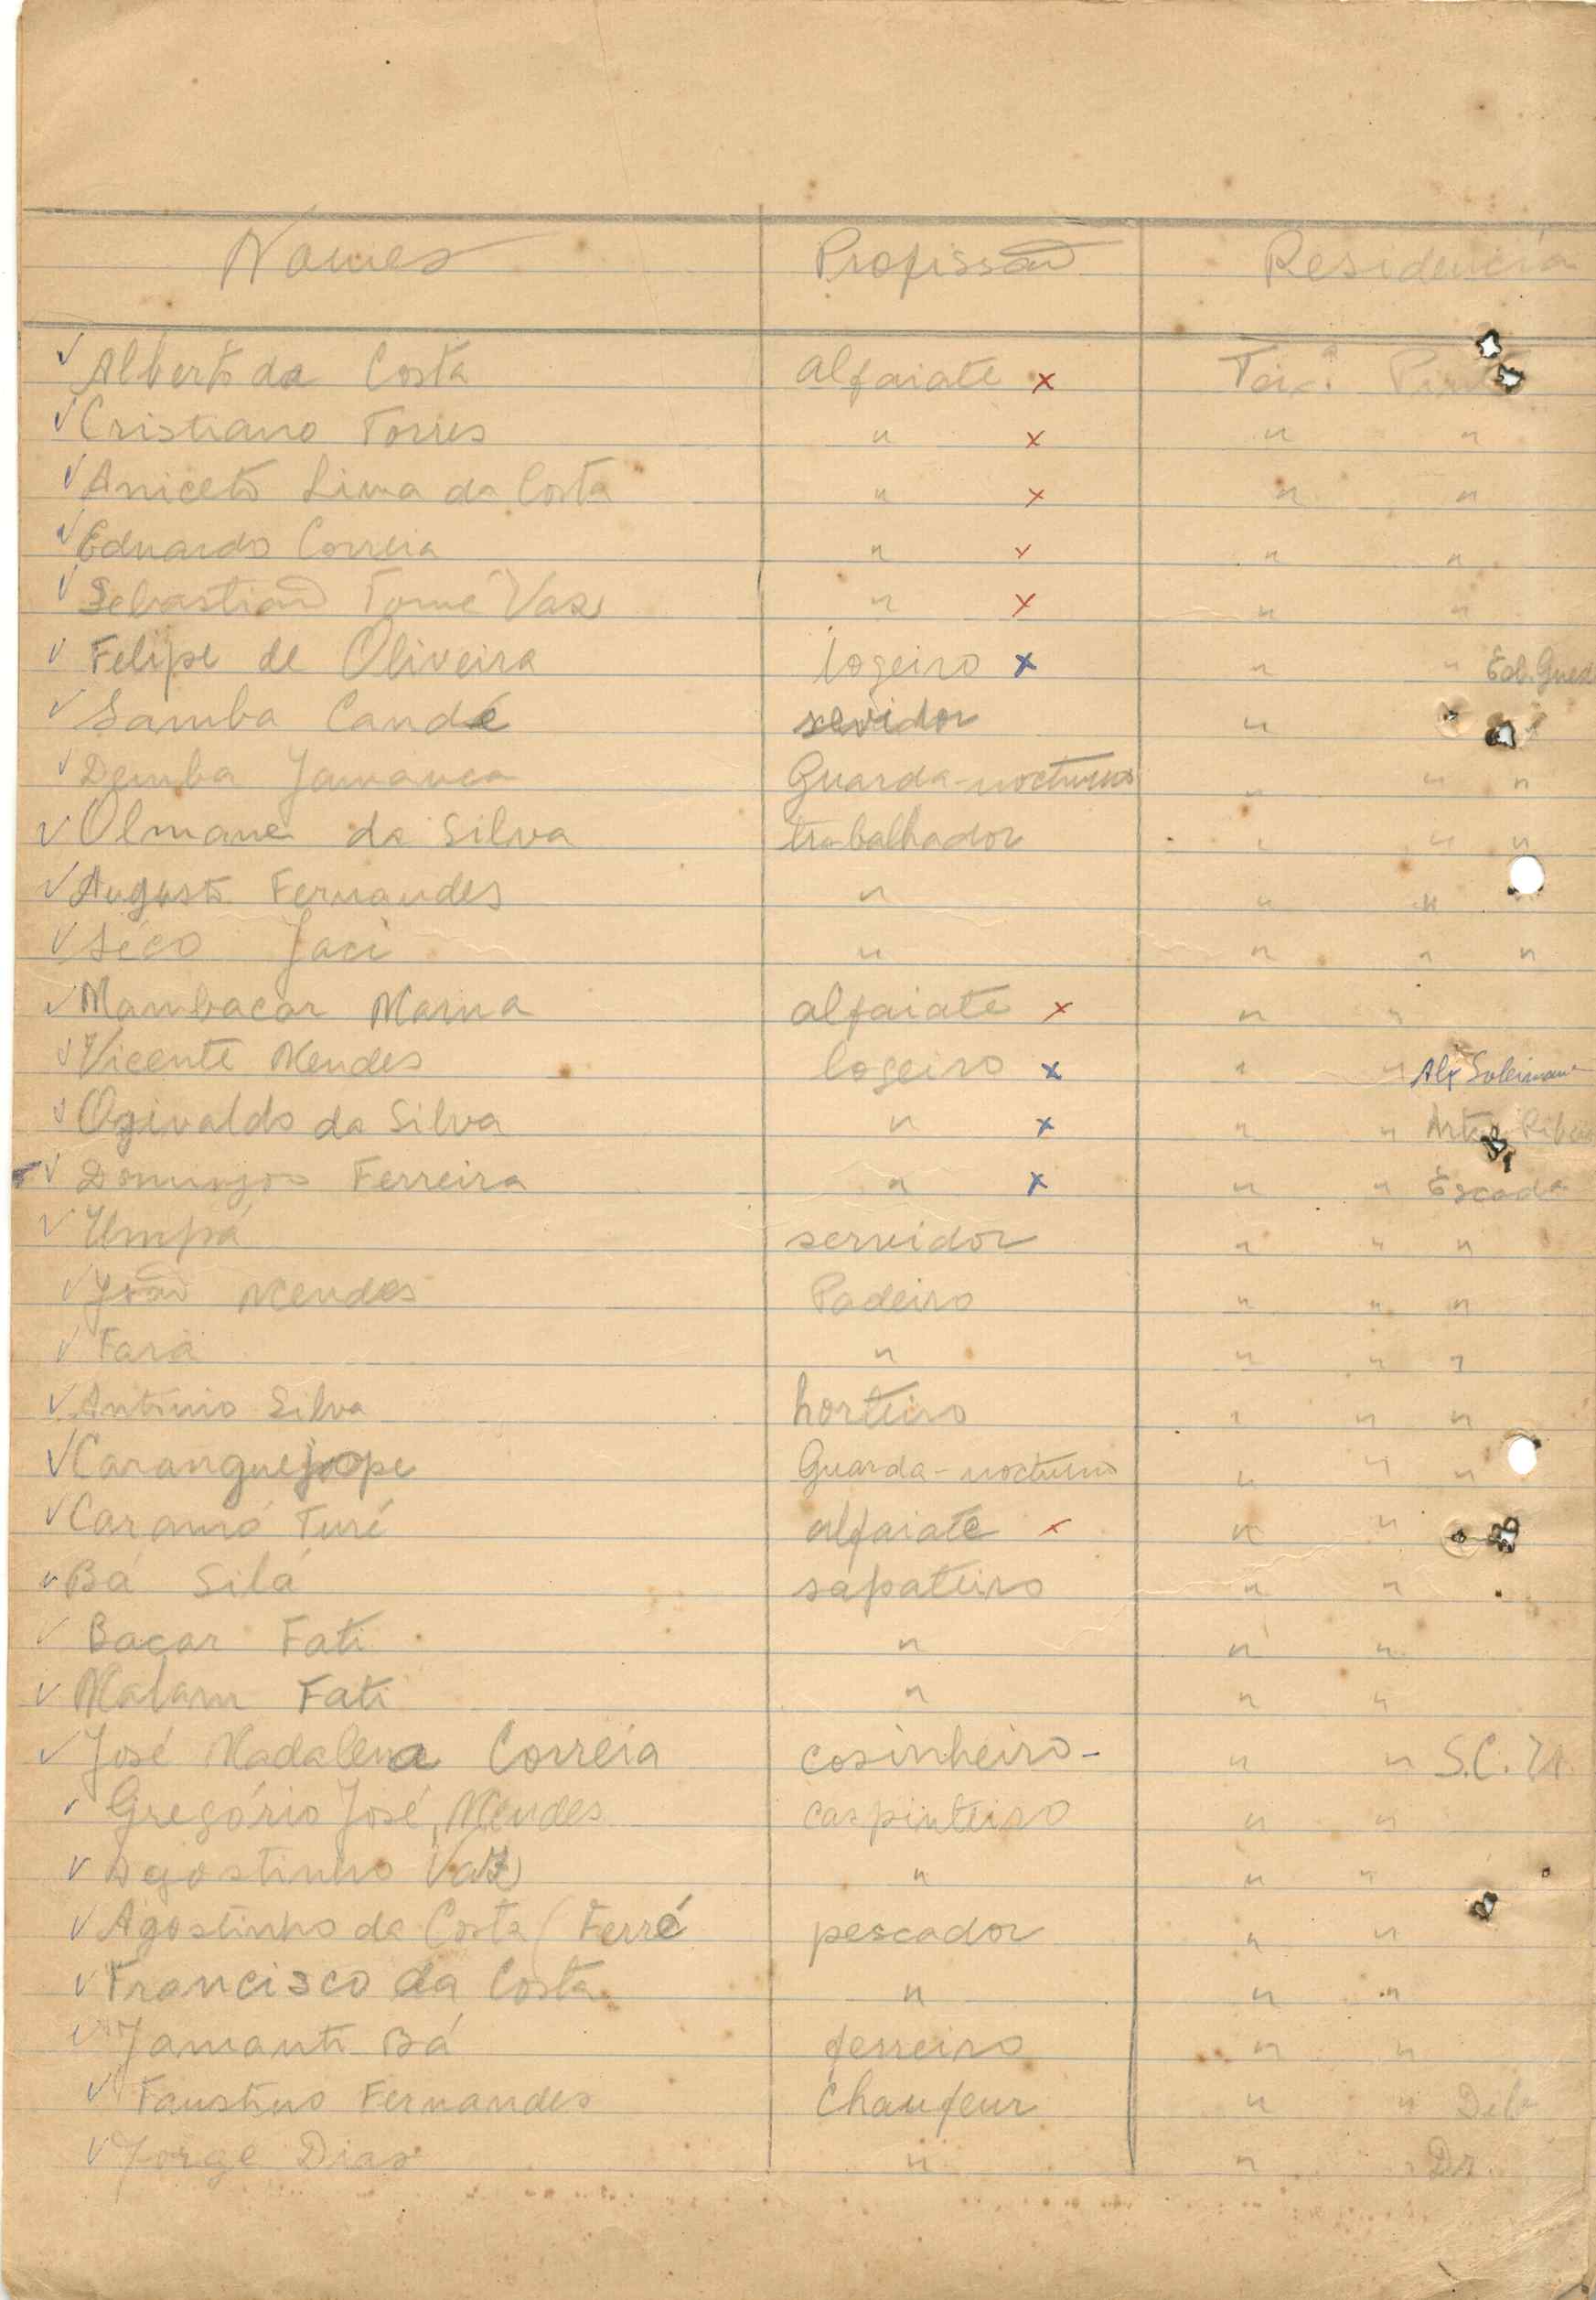 Nomes Profissão Residencia
✓ Alberto da Costa alfaiate x Teix.ª Pinto
✓ Cristiano Torres " x " "
✓ Aniceto Lima da Costa " x " "
✓ Eduardo Correia " x " "
✓ Sebastião Tomé Vaz " x " "
✓ Felipe de Oliveira logeiro x " "
✓ Samba Candé sevidor "
✓ Demba Jamanca Guarda-nocturno " " "
✓ Olmane da Silva trabalhador " " "
✓ Augusto Fernandes " " "
✓ Séco Jaci " " " "
✓ Mambacar Mama alfaiate x " "
✓ Vicente Mendes logeiro x " " Aly Suleimane
✓ Ogivaldo da Silva " x " "
✓ Domingos Ferreira " x " " Escada
✓ Umpá servidor " " "
✓ João Mendes Padeiro " " "
✓ Fara " " " "
✓ António Silva horteiro " " "
✓ Caranguejope Guarda-nocturno " " "
✓ Caramó Turé alfaiate x " "
✓ Bá Silá sapateiro " "
✓ Bacar Fati " " "
✓ Malam Fati " " "
✓ José Madalena Correia cosinheiro - " " S.C.
✓ Gregório José Mendes carpinteiro " "
✓ Agostinho Vaz " " "
✓ Agostinho da Costa (Ferré pescador " "
✓ Francisco da Costa " " "
✓ Jamanti Bá ferreiro " "
✓ Faustino Fernandes Chaufeur " "
✓ Jorge Dias " " " Dr.